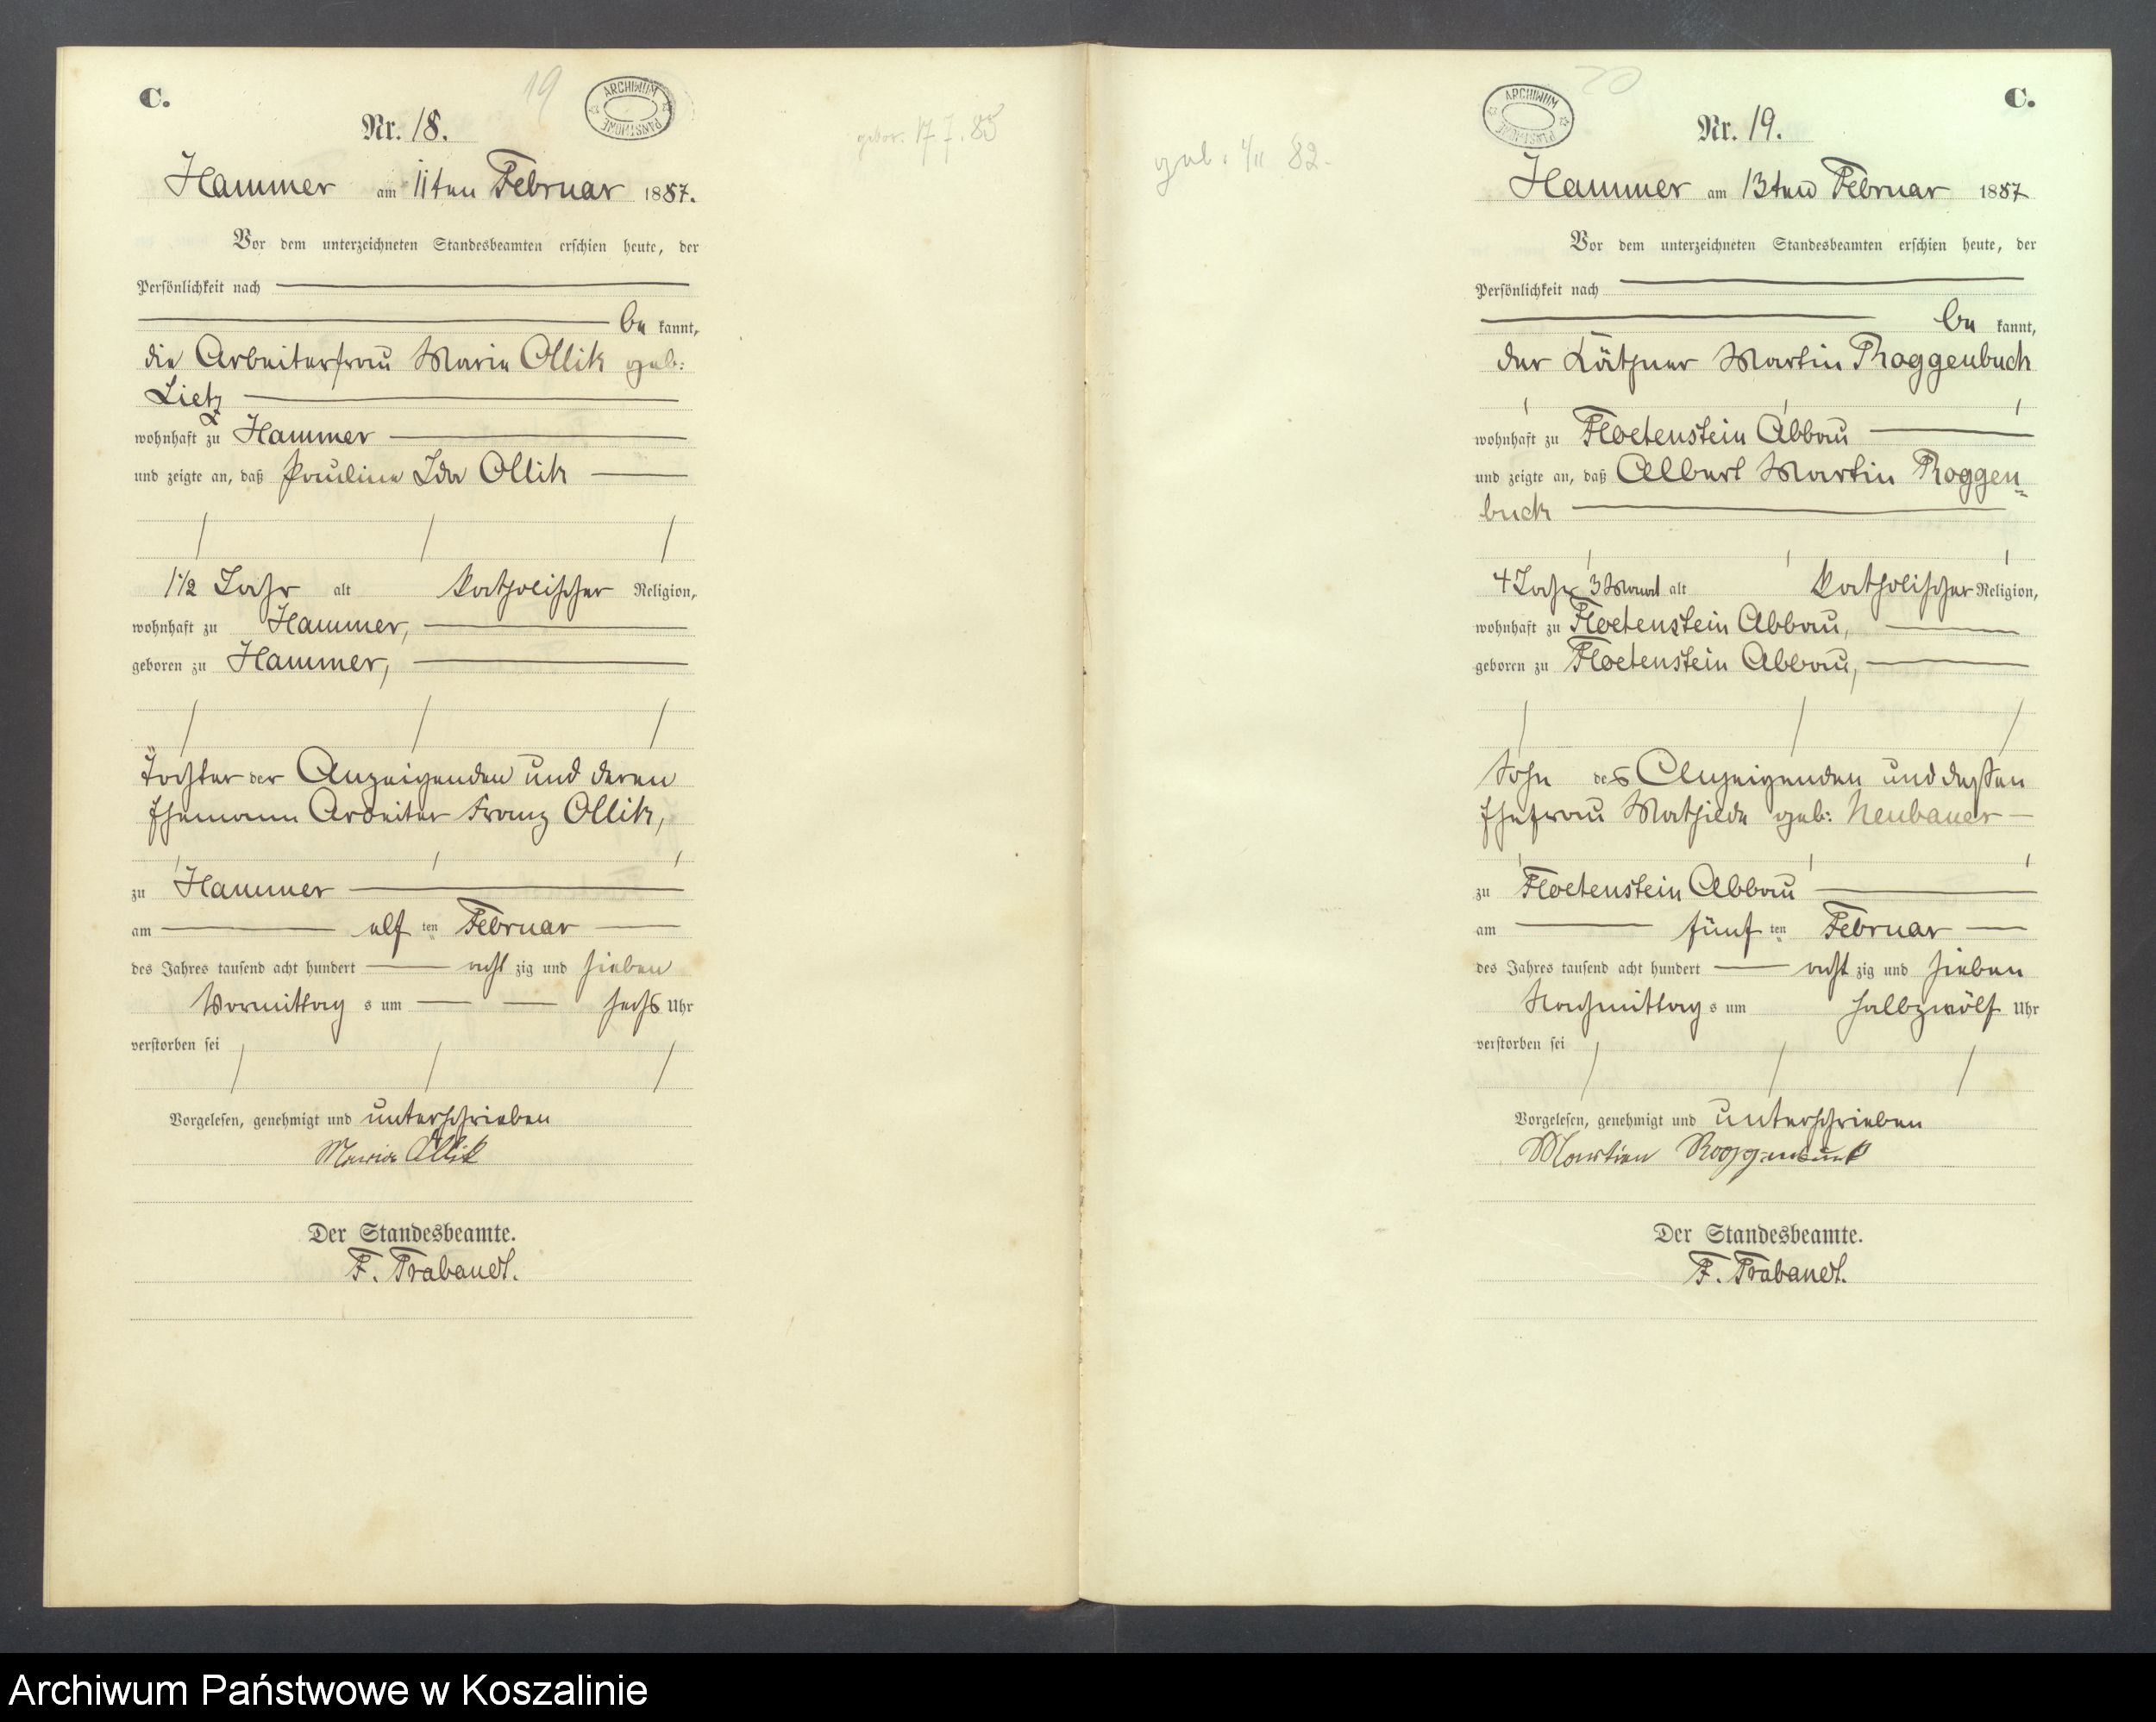 C.
19
ARCHIWUM PAŃSTWOWE
Nr. 18.
gebor. 17.7.85
Hammer am 11ten Februar 1887.
Vor dem unterzeichneten Standesbeamten erschien heute, der
Persönlichkeit nach
be kannt,
die Arbeiterfrau Marie Ollik geb:
Lietz
wohnhaft zu Hammer
und zeigte an, daß Pauline Ida Ollik
1 1/2 Jahr alt katholischer Religion,
wohnhaft zu Hammer,
geboren zu Hammer,
Tochter der Anzeigenden und deren
Ehemann Arbeiter Franz Ollik,
zu Hammer
am elf ten Februar
des Jahres tausend acht hundert acht zig und sieben
Vormittag s um sechs Uhr
verstorben sei
Vorgelesen, genehmigt und unterschrieben
Marie Ollik
Der Standesbeamte.
F. Trabandt.
20
ARCHIWUM PAŃSTWOWE
C.
Nr. 19.
geb. 4/11 82.
Hammer am 13ten Februar 1887
Vor dem unterzeichneten Standesbeamten erschien heute, der
Persönlichkeit nach
be kannt,
der Käthner Martin Roggenbuck
wohnhaft zu Floetenstein Abbau
und zeigte an, daß Albert Martin Roggen=
buck
4 Jahr 3 Monat alt katholischer Religion,
wohnhaft zu Floetenstein Abbau,
geboren zu Floetenstein Abbau,
Sohn des Anzeigenden und dessen
Ehefrau Mathilde geb: Neubauer
zu Floetenstein Abbau
am fünf ten Februar
des Jahres tausend acht hundert acht zig und sieben
Nachmittag s um halbzwölf Uhr
verstorben sei
Vorgelesen, genehmigt und unterschrieben
Martien Roggenbuck
Der Standesbeamte.
F. Trabandt.
Archiwum Państwowe w Koszalinie